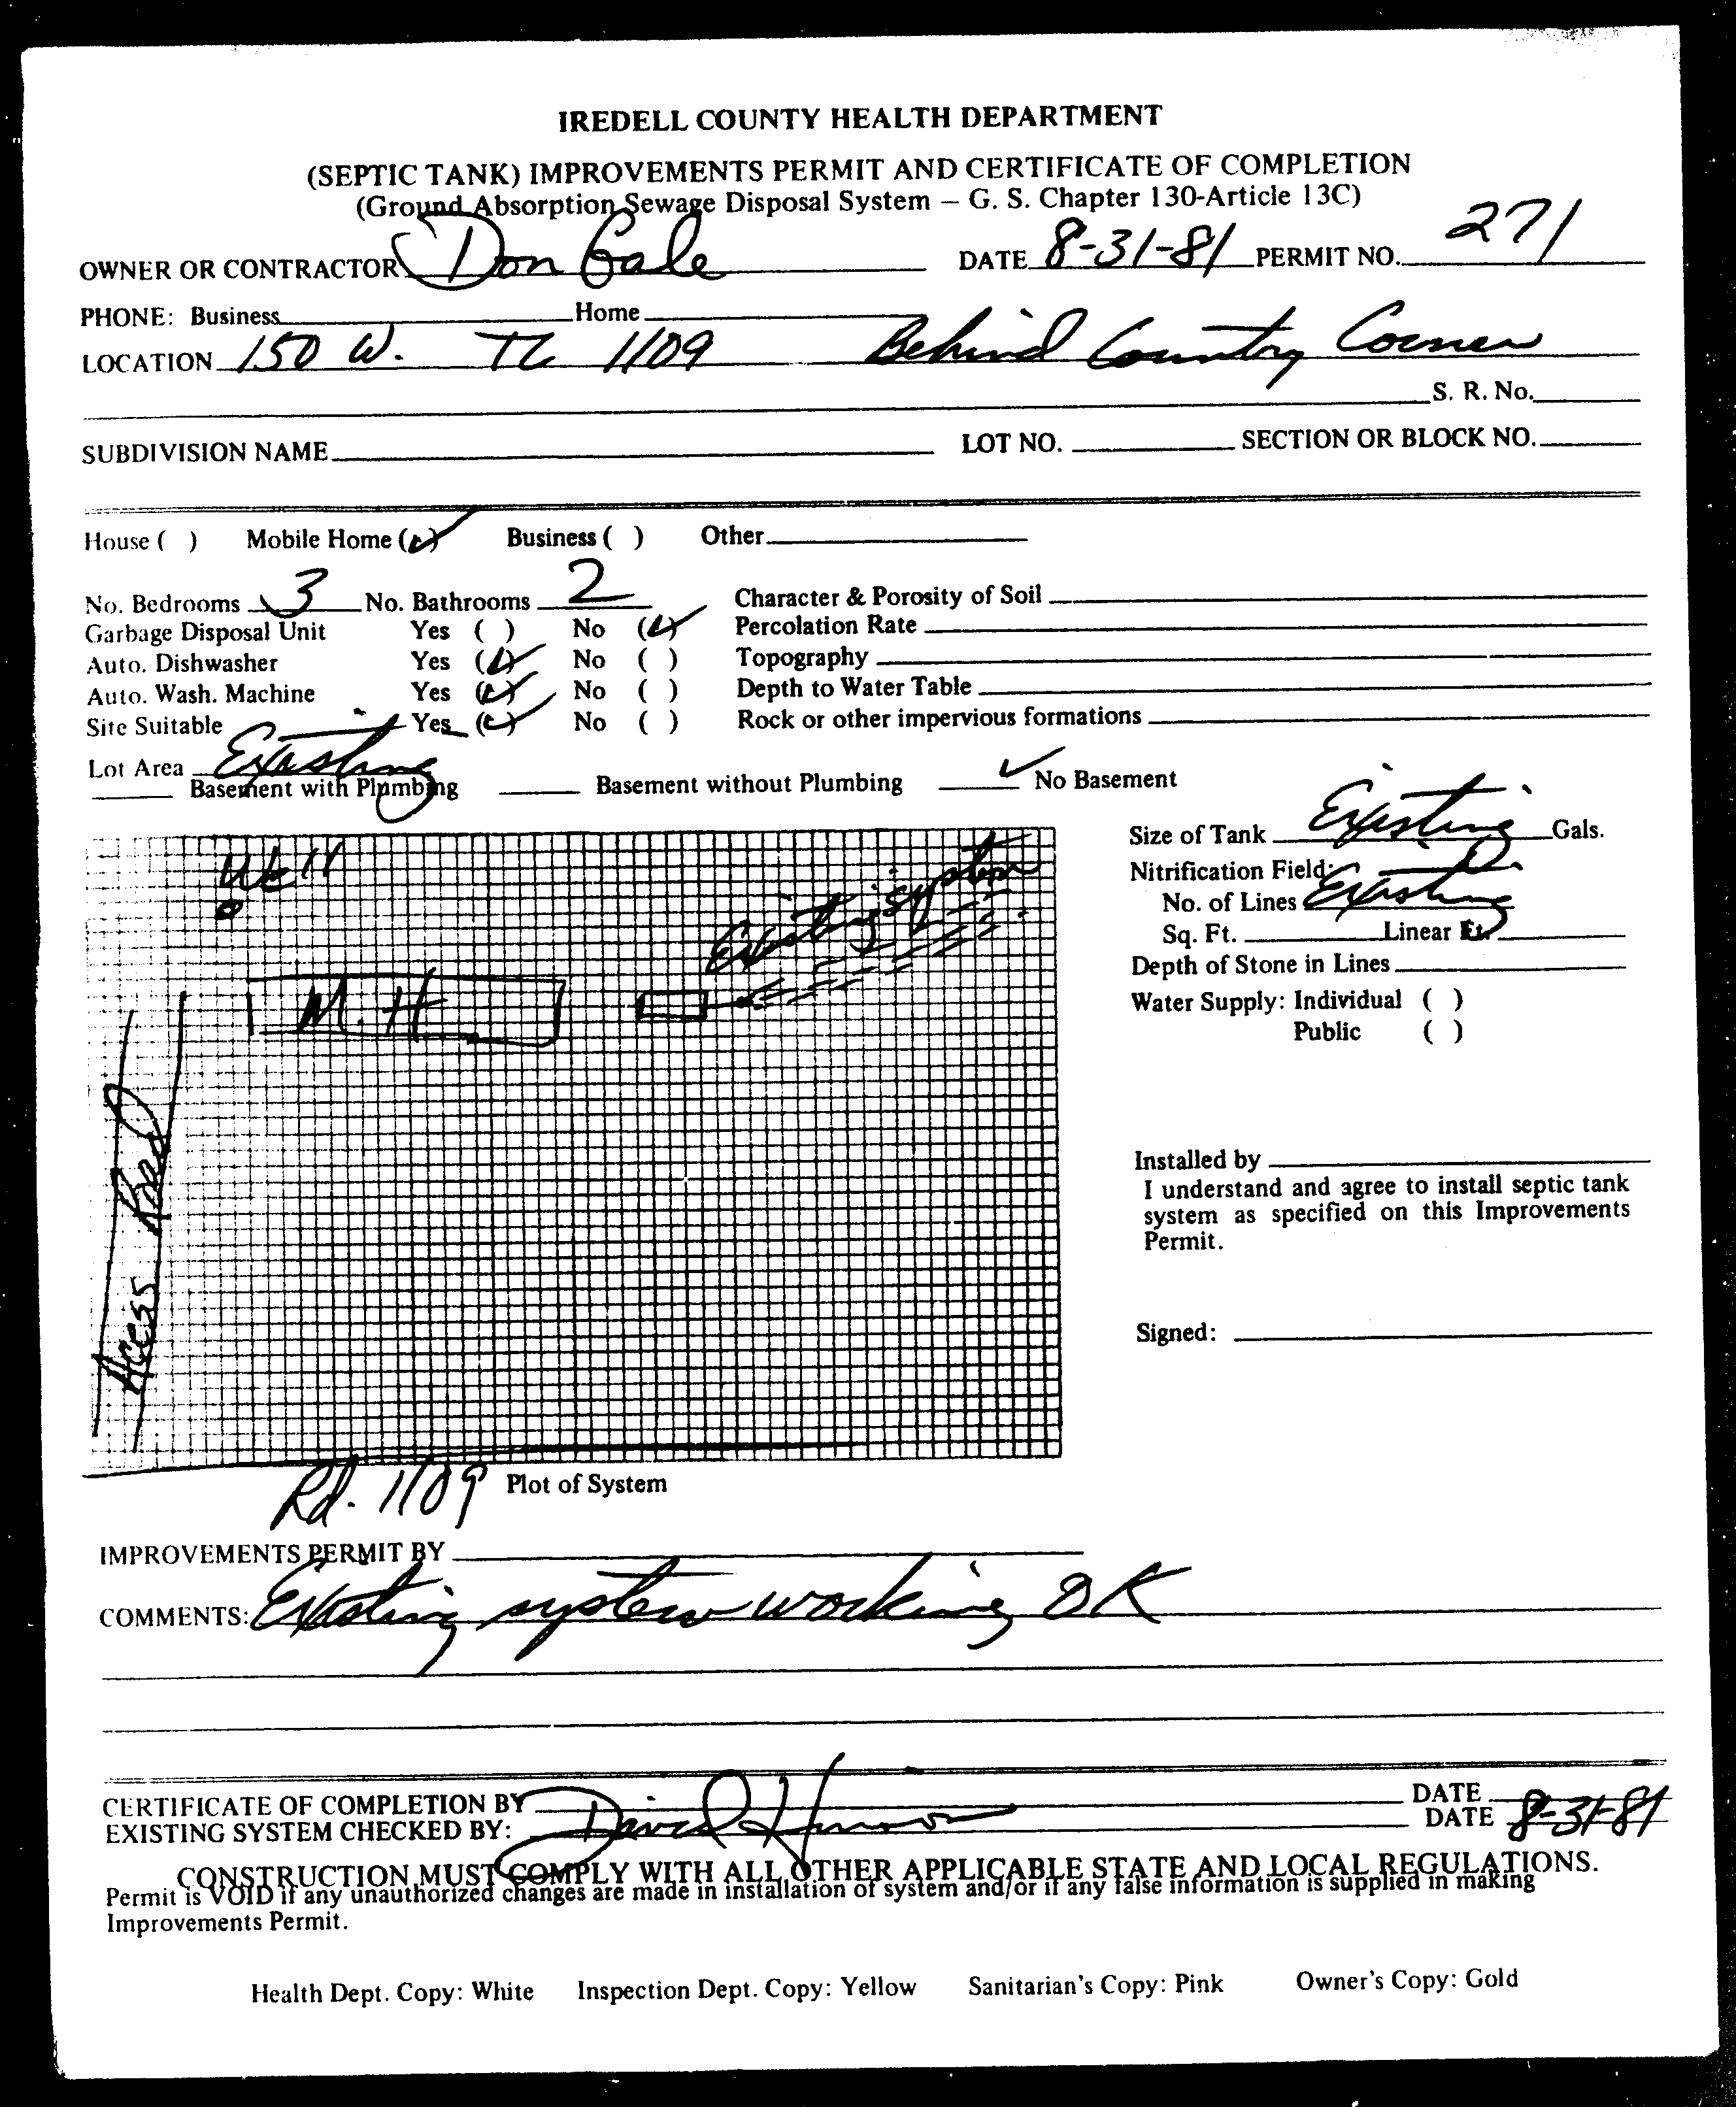 IREDELL COUNTY HEALTH DEPARTMENT
(SEPTIC TANK) IMPROVEMENTS PERMIT AND CERTIFICATE OF COMPLETION
(Ground Absorption Sewage Disposal System – G. S. Chapter 130-Article 13C)
OWNER OR CONTRACTOR Don Gale DATE 8-31-81 PERMIT NO. 271
PHONE: Business Home
LOCATION 150 W. TL 1109 Behind Country Corner
S. R. No.
SUBDIVISION NAME LOT NO. SECTION OR BLOCK NO.
House ( ) Mobile Home (✓) Business ( ) Other
No. Bedrooms 3 No. Bathrooms 2 Character & Porosity of Soil
Garbage Disposal Unit Yes ( ) No (✓) Percolation Rate
Auto. Dishwasher Yes (✓) No ( ) Topography
Auto. Wash. Machine Yes (✓) No ( ) Depth to Water Table
Site Suitable Yes (✓) No ( ) Rock or other impervious formations
Lot Area Existing
Basement with Plumbing Basement without Plumbing ✓ No Basement
Well
Existing system
M. H
Access Road
Rd. 1109 Plot of System
Size of Tank Existing Gals.
Nitrification Field:
No. of Lines Existing
Sq. Ft. Linear Ft.
Depth of Stone in Lines
Water Supply: Individual ( )
Public ( )
Installed by
I understand and agree to install septic tank
system as specified on this Improvements
Permit.
Signed:
IMPROVEMENTS PERMIT BY
COMMENTS: Existing system working OK
CERTIFICATE OF COMPLETION BY DATE
EXISTING SYSTEM CHECKED BY: David DATE 8-31-81
CONSTRUCTION MUST COMPLY WITH ALL OTHER APPLICABLE STATE AND LOCAL REGULATIONS.
Permit is VOID if any unauthorized changes are made in installation of system and/or if any false information is supplied in making
Improvements Permit.
Health Dept. Copy: White Inspection Dept. Copy: Yellow Sanitarian's Copy: Pink Owner's Copy: Gold